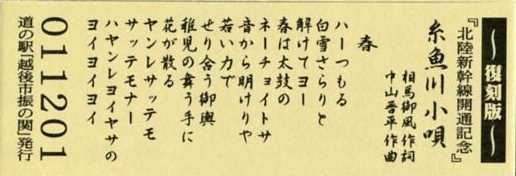 ～復刻版～
『北陸新幹線開通記念』
糸魚川小唄
相馬御風 作詞
中山晋平 作曲
春
ハーつもる
白雪さらりと
解けてヨー
春は太鼓の
ネーチョイトサ
音から明けりや
若い力で
せり合う御輿
稚児の舞う手に
花が散る
ヤンレサッテモ
サッテモナー
ハヤンレヨイヤサの
ヨイヨイヨイ
011201
道の駅「越後市振の関」発行